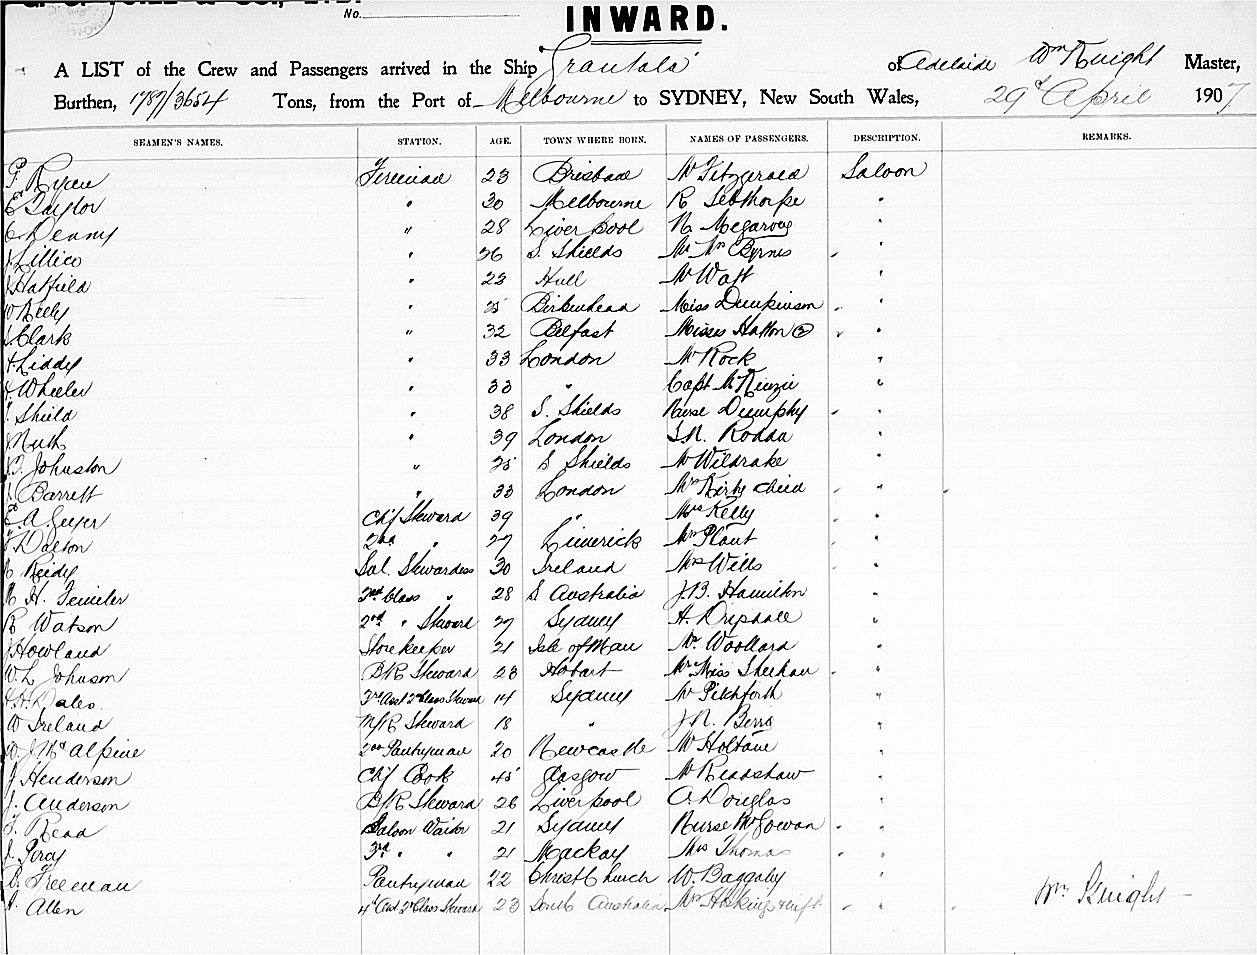 No.
INWARD.
A LIST of the Crew and Passengers arrived in the Ship Grantala of Adelaide Wm Knight Master,
Burthen, 1787/3654 Tons, from the Port of Melbourne to SYDNEY, New South Wales, 29th April 1907
SEAMEN'S NAMES. STATION. AGE. TOWN WHERE BORN. NAMES OF PASSENGERS. DESCRIPTION. REMARKS.
Ryan Fireman 23 Brisbane Mr Fitzgerald Saloon
E Taylor " 30 Melbourne R Selthorpe "
C Denny " 28 Liverpool N. Megarvey "
J Lillico " 26 S. Shields Mr Mrs Byrnes "
J Hatfield " 23 Hull Mr Watt "
Kelly " 25 Birkenhead Miss Dunkinson "
J Clark " 32 Belfast Misses Hatton "
Liddy " 33 London Mr Rock "
Wheeler " 33 " Capt McKenzie "
Shield " 38 S. Shields Nurse Dumphy "
Nuth " 39 London S.N. Rodda "
Johnston " 25 S Shields Mr Wildrake "
J Barrett " 33 London Mrs Kirby child "
E.A. Geyer Chf Steward 39 " Mrs Kelly "
Dalton 2nd " 27 Limerick Mrs Plant "
Reidy Sal. Stewardess 30 Ireland Mrs Wills "
H. 2nd Class " 28 S Australia J.B. Hamilton "
R Watson 2nd " Steward 27 Sydney H. Drysdale "
J Howland Storekeeper 21 Isle of Man Mr. Woollard "
W.L Johnson B/R Steward 23 Hobart Mr Miss Sheehan "
Dales. 3rd Asst 2nd Class Steward 14 Sydney Mr Pitchforth "
W Ireland M/R Steward 18 " J.N. "
W J McAlpine 2nd Pantryman 20 Newcastle Mr Holtane "
J Henderson Chf Cook 45 Glasgow Mr Readshaw "
J. Anderson B/R Steward 26 Liverpool A. Douglas "
Read Saloon Waiter 21 Sydney Nurse McGowan "
J. Percy 3rd " " 21 Mackay Mrs Thomas "
Freeman Pantryman 22 Christchurch W. Baggaley "
Allen 4th Asst 2nd Class Steward 23 South Australia Mrs Hoskings & inft " Wm Knight